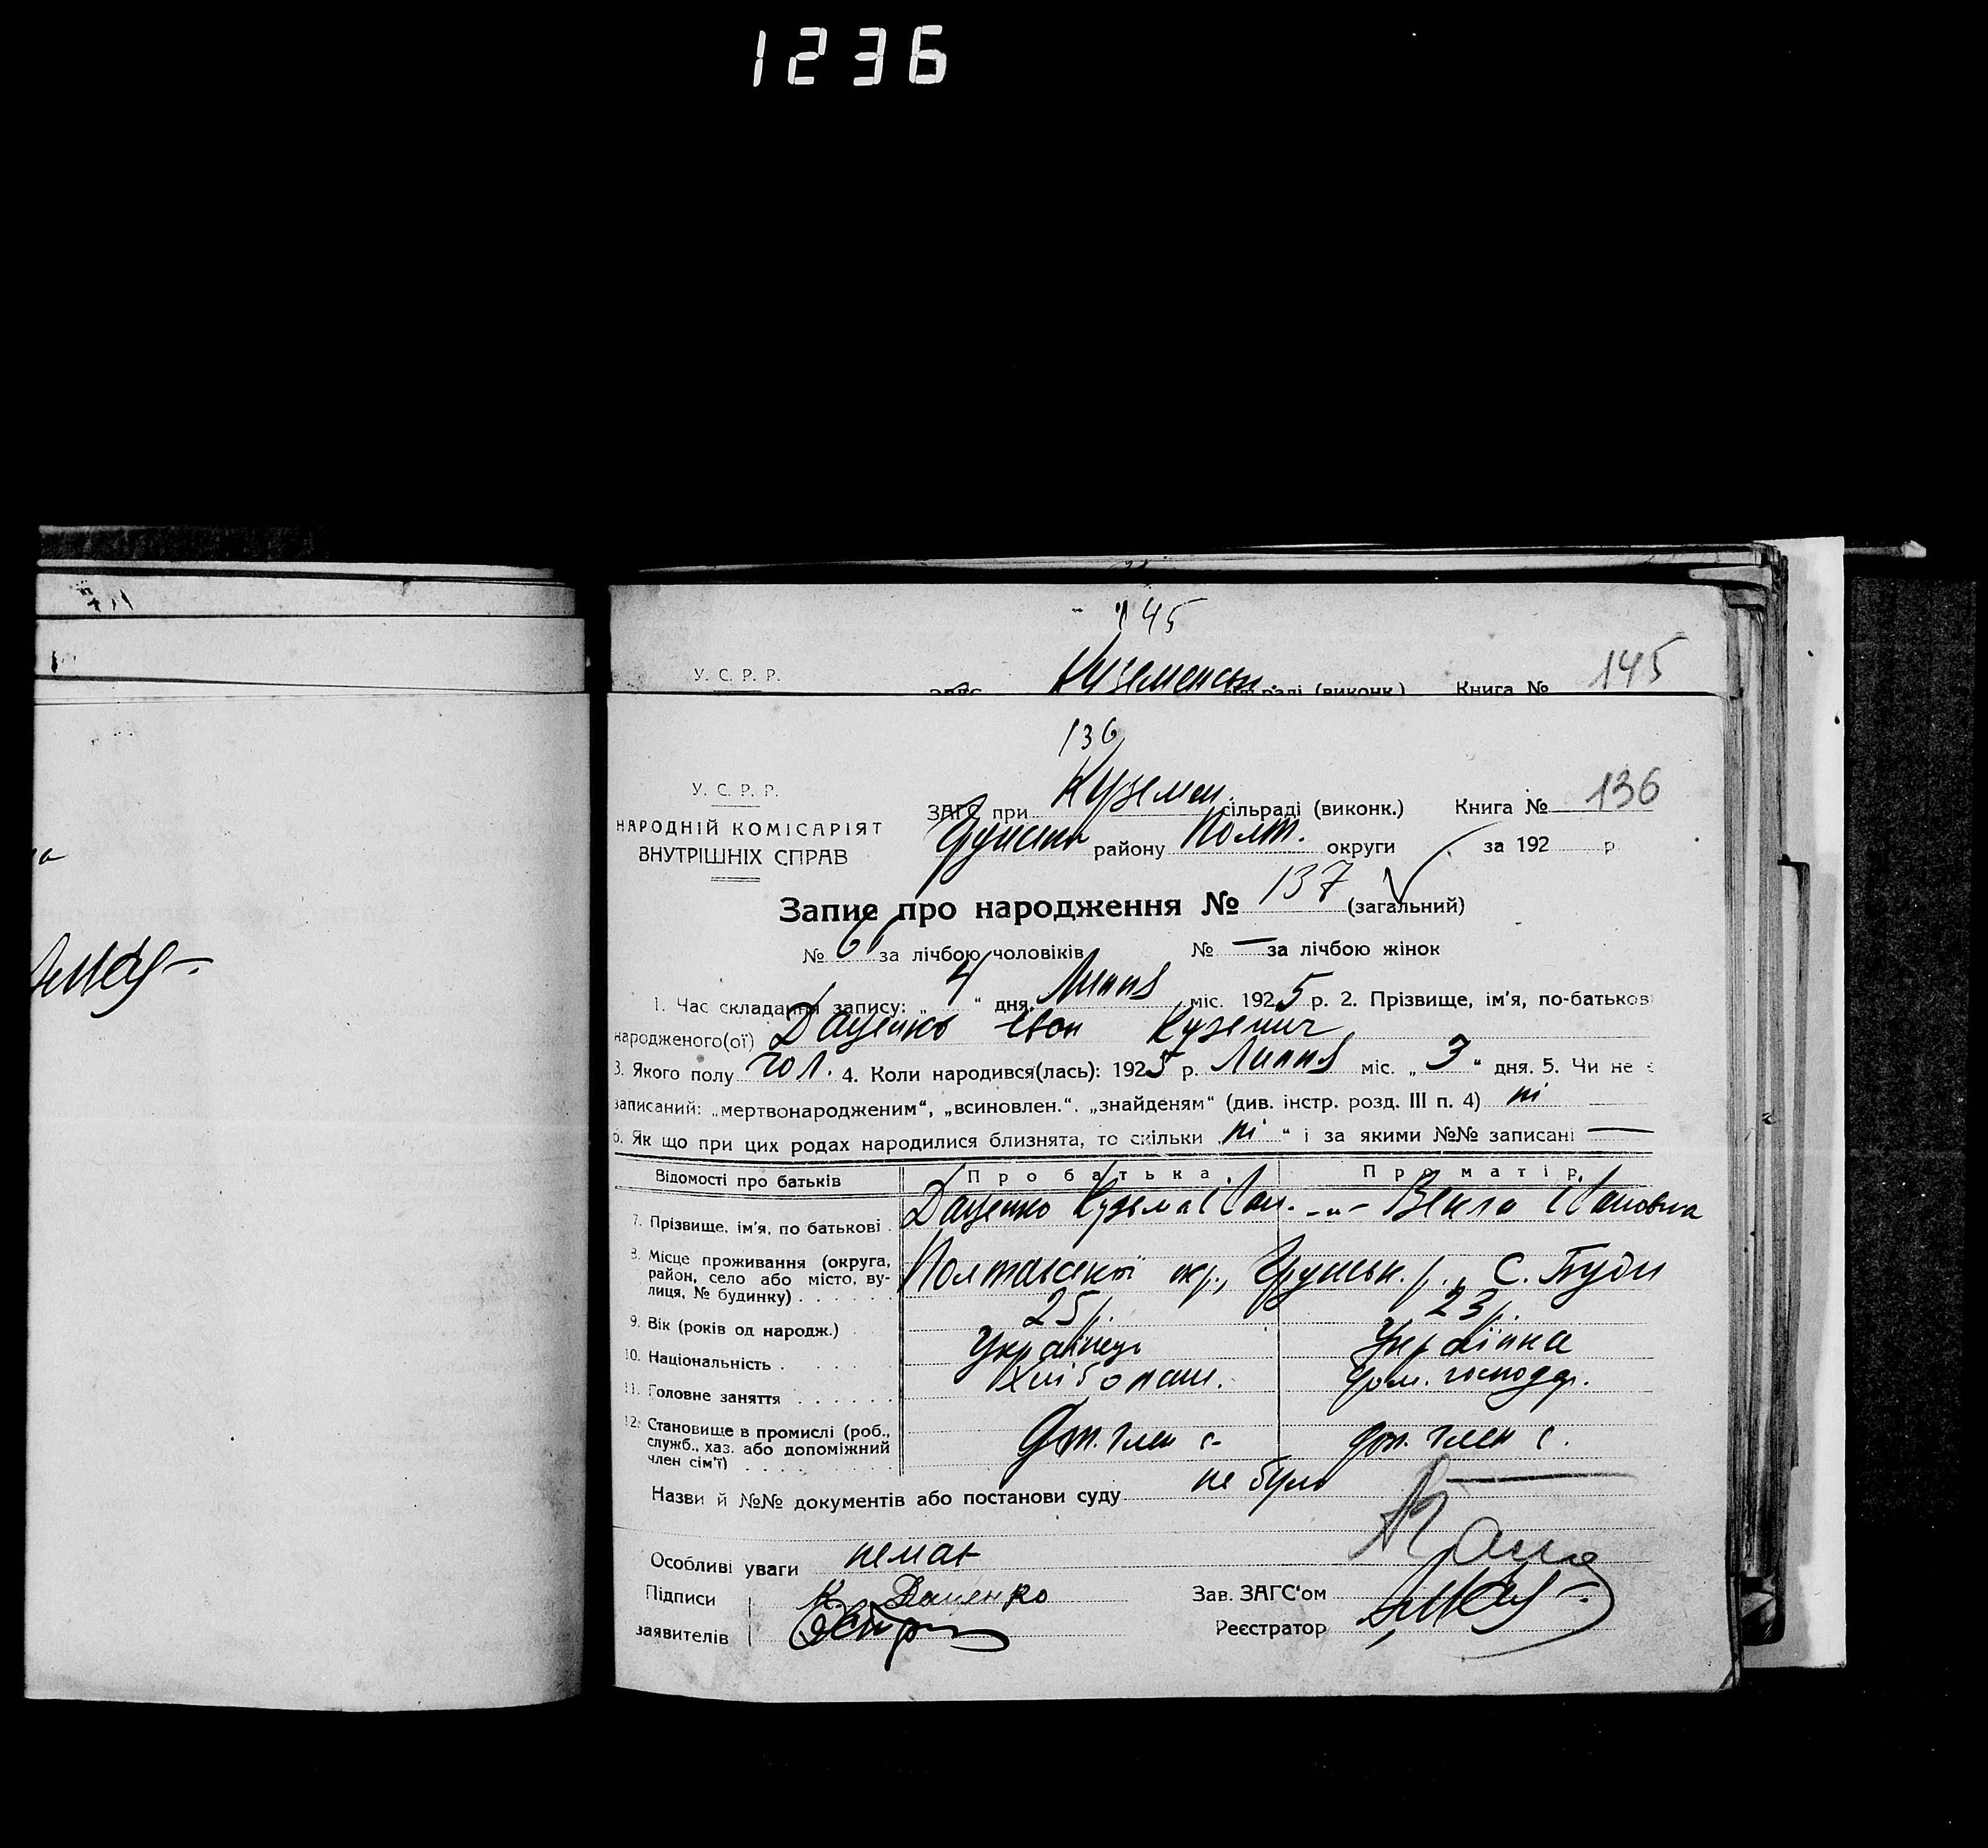 1236
145
У. С. Р. Р.
Куземенськ. сільраді (виконк.) Книга № 145
136
У. С. Р. Р.
НАРОДНІЙ КОМІСАРІЯТ
ВНУТРІШНІХ СПРАВ
ЗАГС при Куземен. сільраді (виконк.) Книга № 136
Грунськ району Полт. округи за 192 р.
Запис про народження № 137 (загальний)
№ за лічбою чоловіків № — за лічбою жінок
1. Час складання запису: „ 4 “ дня. Липня міс. 1925 р. 2. Прізвище, ім'я, по-батькові
народженого(ої) Даценко Іван Кузьмич
3. Якого полу чол. 4. Коли народився(лась): 1925 р. Липня міс. „ 3 “ дня. 5. Чи не є
записаний: „мертвонародженим“, „всиновлен.“, „знайденям“ (див. інстр. розд. III п. 4) ні
6. Як що при цих родах народилися близнята, то скільки ні “ і за якими №№ записані —
Відомості про батьків Про батька. Про матір.
7. Прізвище, ім'я, по батькові. Даценко Кузьма Іван. -„- Векла Івановна
8. Місце проживання (округа, район, село або місто, вулиця, № будинку) Полтавської окр., Грунськ. р., С. Буди
9. Вік (років од народж.) 25 р. 23 р.
10. Національність Українець Українка
11. Головне заняття Хлібопаш. дом. господар.
12. Становище в промислі (роб., служб., хаз. або допоміжний член сім'ї) Доп. член с. доп. член с.
Назви й №№ документів або постанови суду не було
Особливі уваги немає
Підписи К. Даценко Зав. ЗАГС'ом
заявителів Реєстратор